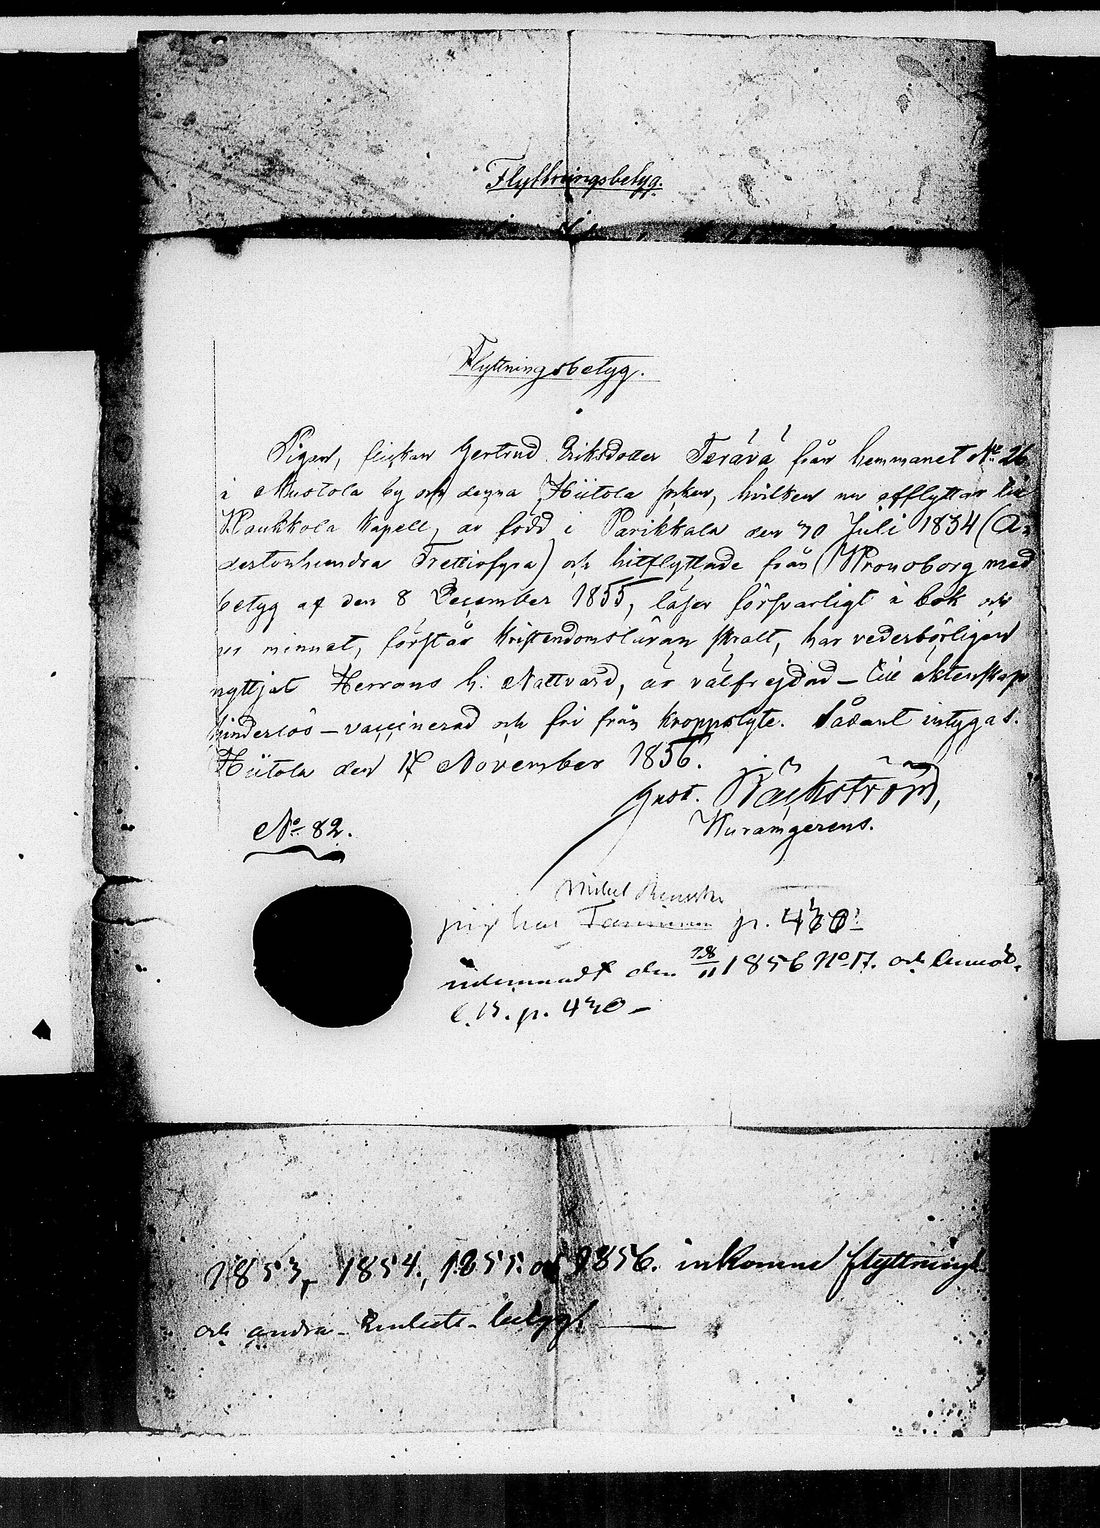 Flyttningsbetyg.
Flyttningsbetyg.
Pigan, flickan Gertrud Eriksdotter Terävä från hemmanet No 26
i Mustola by och denna Hiitola socken, hvilken nu afflyttar till
Haukkola Kapell, är född i Parikkala den 30 Juli 1834 (Ade
rtonhundra Trettiofyra) och hitflyttade från Kronoborg med
betyg af den 8 December 1855, läser försvarligt i bok och
ur minnet, förstår Kristendomsläran svalt, har vederbörligen
nyttjat Herrans h: Nattvard, är välfrejdad – till äktenskap
hinderlös – vaccinerad och fri från kroppslyte. Sådant intygas.
Hiitola den 17 November 1856.
Gust. Bäckström,
No 82.
Mikel
p. 430
den 28/11 1856 No 17. och
C. B. p. 430 –
1853, 1854, 1855 och 1856. inkomne flyttnings
och andra – Enskilte – betyg. —